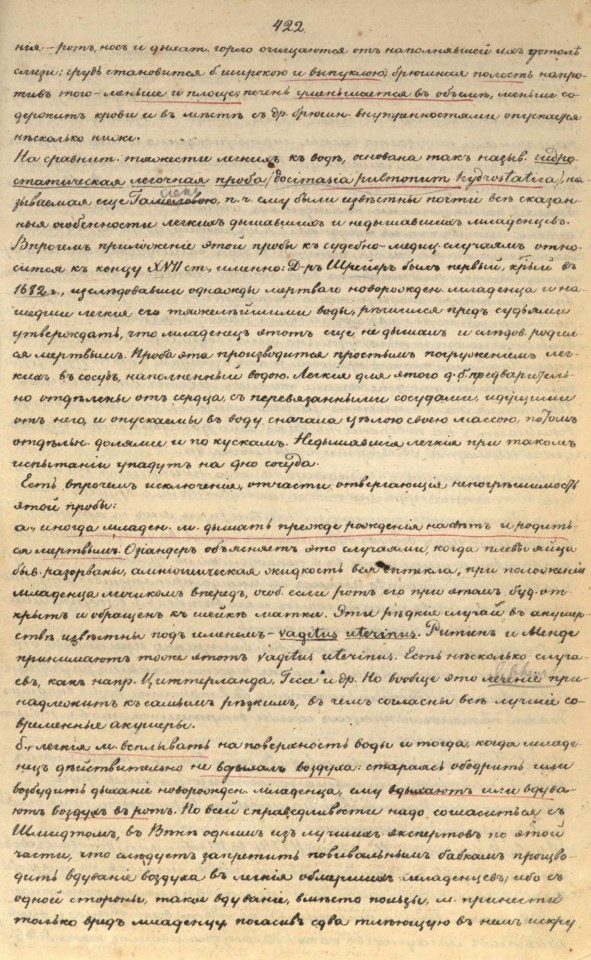 422
нія – ротъ, носъ и дыхат. горло очищаются отъ наполнявшей ихъ дотолѣ
слизи; грудь становится б. широкою и выпуклою, брюшная полость напро-
тивъ того – меньше и площе; печень уменьшается въ объемѣ, меньше со-
держитъ крови и въ мѣстѣ съ др. брюшн. внутренностями опускается
нѣсколько ниже.
На сравнит. тяжести легкихъ къ водѣ, основана такъ назыв. гидро-
статическая легочная проба (docimasia pulmonum hydrostatica), на-
зываемая еще , п.ч. ему были извѣстны почти всѣ сказан-
ныя особенности легкихъ дышавшихъ и недышавшихъ младенцевъ.
Впрочемъ приложеніе этой пробы къ судебно-медиц. случаямъ отно-
сится къ концу XVII ст., именно: Д-ръ Шрейеръ былъ первый, крый въ
1682 г., изслѣдовавши однажды мертваго новорожден. младенца и на-
шедши легкія его тяжелѣйшими воды, рѣшился предъ судьями
утверждать, что младенецъ этотъ еще не дышалъ и слѣдов. родил-
ся мертвымъ. Проба эта производится простымъ погруженіемъ лег-
кихъ въ сосудъ, наполненный водою. Легкія для этого д. б. предваритель-
но отдѣлены отъ сердца, съ перевязанными сосудами, идущими
отъ него, и опускаемы въ воду сначала цѣлою своею массою, потомъ
отдѣльн. долями и по кускамъ. Недышавшія легкія при такомъ
испытаніи упадутъ на дно сосуда.
Есть впрочемъ исключенія, отчасти отвергающія непогрѣшимость
этой пробы:
а., иногда младен. м. дышать прежде рожденія на свѣтъ и родить-
ся мертвымъ. Озандеръ объясняетъ это случаями, когда плевы яйца
быв. разорваны, амніотическая жидкость вся стекла, при положеніи
младенца личикомъ впередъ, особ. если ротъ его при этомъ буд. от-
крытъ и обращенъ къ шейкѣ матки. Эти рѣдкіе случаи въ акушер-
ствѣ извѣстны подъ именемъ – vagitus uterinus. Ритгенъ и Менде
принимаютъ тоже этотъ vagitus uterinus. Есть нѣсколько случа-
евъ, какъ напр. Циттерланда, Гессе и др. Но вообще это при-
надлежитъ къ самымъ рѣдкимъ, въ чемъ согласны всѣ лучшіе со-
временные акушеры.
б., легкія м. всплывать на поверхность воды и тогда, когда младе-
нецъ дѣйствительно не вдыхалъ воздуха: стараясь ободрить или
возбудить дыханіе новорожден. младенца, ему вдыхаютъ или вдува-
ютъ воздухъ въ ротъ. По всей справедливости надо согласиться съ
Шмидтомъ, въ Вѣнѣ однимъ изъ лучшихъ экспертовъ по этой
части, что слѣдуетъ запретить повивальнымъ бабкамъ произво-
дить вдуваніе воздуха въ легкія обмершихъ младенцевъ; ибо съ
одной стороны, такое вдуваніе, вмѣсто пользы, м. принести
только вредъ младенцу, погасивъ едва тлѣющую въ немъ искру